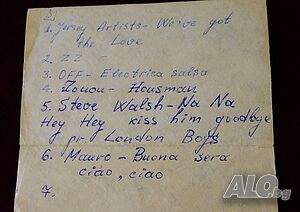 1. Jersey Artists - We've got
the Love
2. ZZ -
3. OFF - Electrica salsa
4. Housman
5. Steve Walsh - Na Na
Hey Hey kiss him goodbye
pr. London Boys
6. Mauro - Buona sera
ciao, ciao
7.
ALO.bg